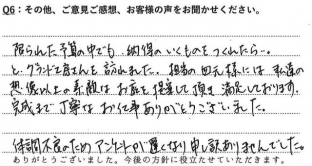 Q6：その他、ご意見ご感想、お客様の声をお聞かせください。
限られた予算の中でも、納得のいくものをつくれたら…。
と、グランド工房さんを訪れました。担当の四元様には、私達の
想像以上の素敵なお庭を提案して頂き満足しております。
完成まで丁寧なお仕事ありがとうございました。
体調不良のためアンケートが遅くなり申し訳ありませんでした。
ありがとうございました。今後の方針に役立たせていただきます。